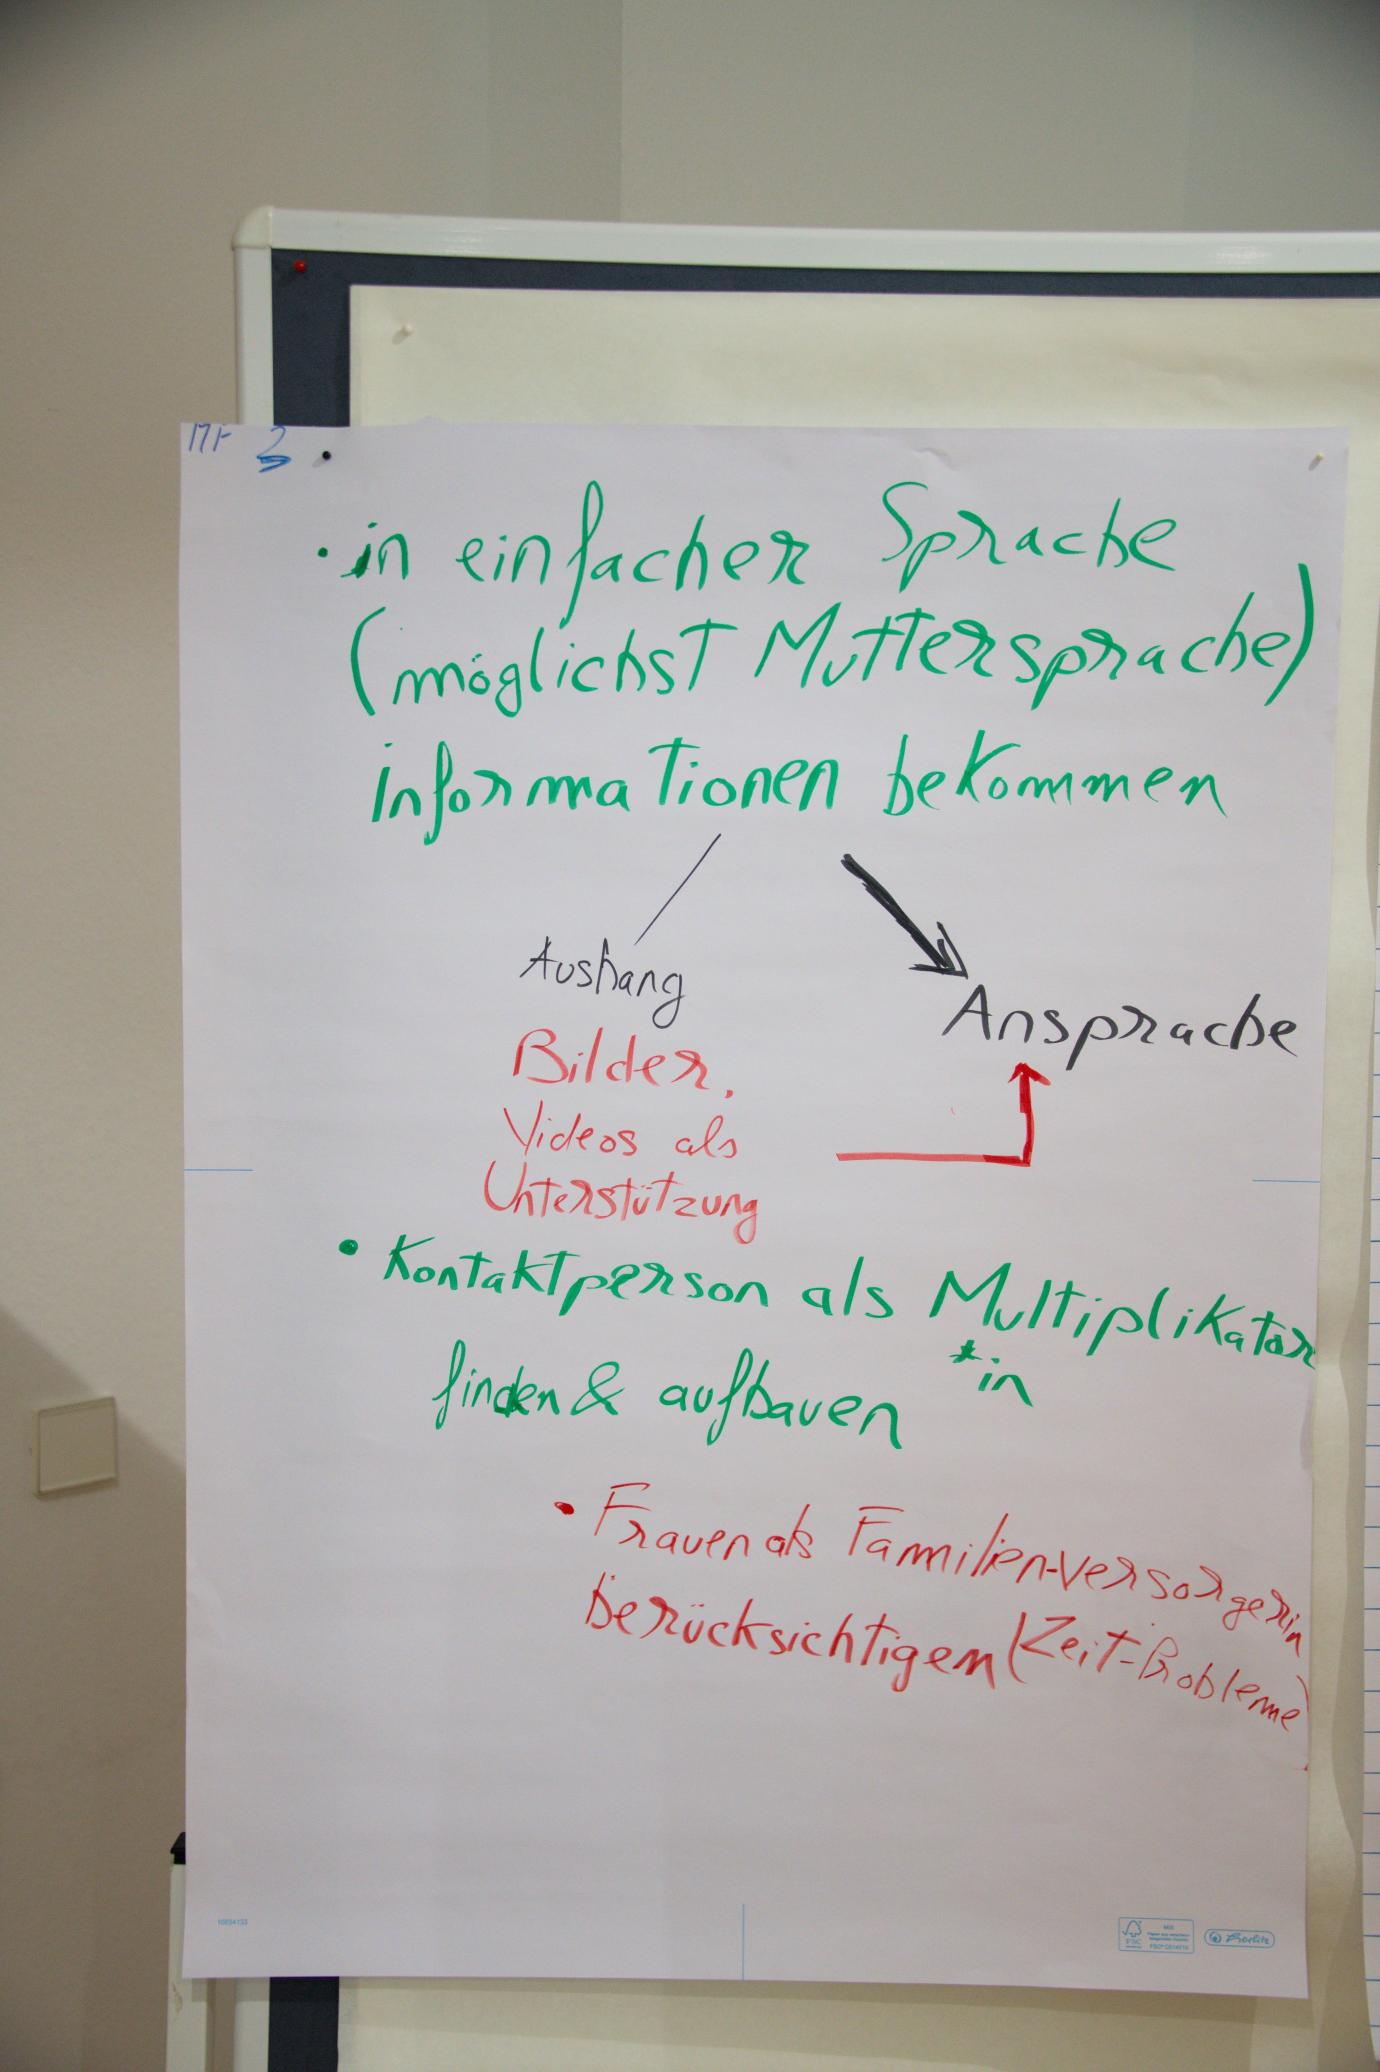 2
· in einfacher Sprache
(möglichst Muttersprache)
Informationen bekommen
Aushang
Ansprache
Bilder,
Videos als
Unterstützung
• Kontaktperson als Multiplikator
*in
finden & aufbauen
• Frauen als Familien-versorgerin
berücksichtigen (Zeit-Probleme)
10834133
FSC
MIX
herlitz